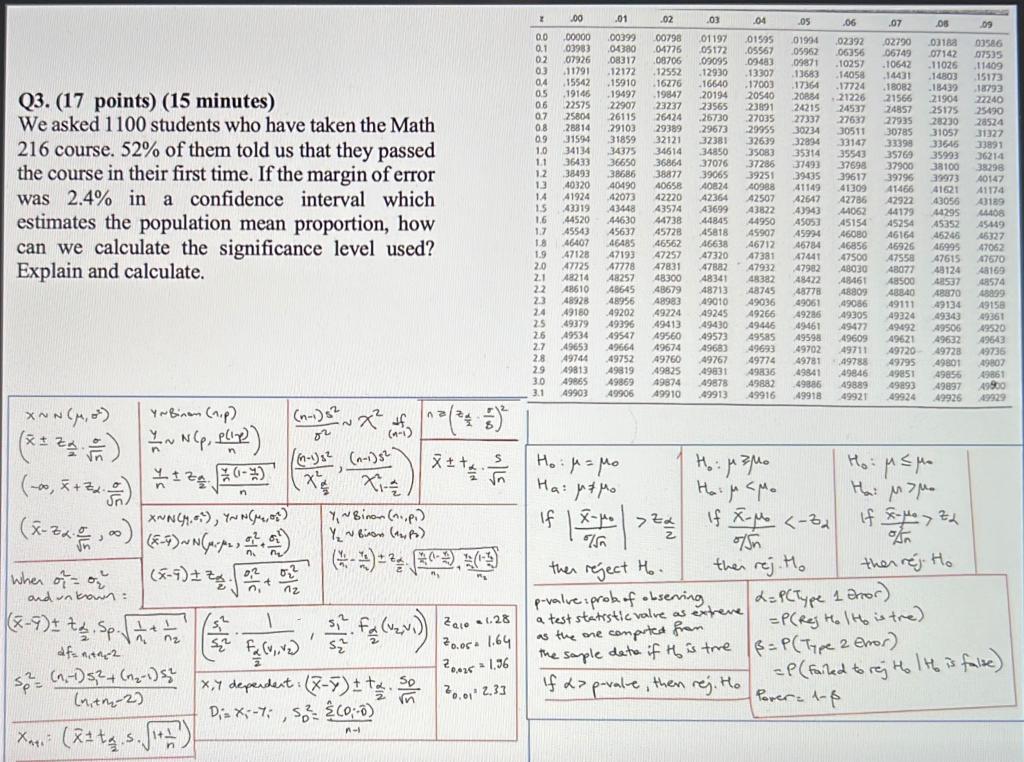 Q3. (17 points) (15 minutes)
We asked 1100 students who have taken the Math
216 course. 52% of them told us that they passed
the course in their first time. If the margin of error
was 2.4% in a confidence interval which
estimates the population mean proportion, how
can we calculate the significance level used?
Explain and calculate.
z .00 .01 .02 .03 .04 .05 .06 .07 .08 .09
0.0 .00000 .00399 .00798 .01197 .01595 .01994 .02392 .02790 .03188 .03586
0.1 .03983 .04380 .04776 .05172 .05567 .05962 .06356 .06749 .07142 .07535
0.2 .07926 .08317 .08706 .09095 .09483 .09871 .10257 .10642 .11026 .11409
0.3 .11791 .12172 .12552 .12930 .13307 .13683 .14058 .14431 .14803 .15173
0.4 .15542 .15910 .16276 .16640 .17003 .17364 .17724 .18082 .18439 .18793
0.5 .19146 .19497 .19847 .20194 .20540 .20884 .21226 .21566 .21904 .22240
0.6 .22575 .22907 .23237 .23565 .23891 .24215 .24537 .24857 .25175 .25490
0.7 .25804 .26115 .26424 .26730 .27035 .27337 .27637 .27935 .28230 .28524
0.8 .28814 .29103 .29389 .29673 .29955 .30234 .30511 .30785 .31057 .31327
0.9 .31594 .31859 .32121 .32381 .32639 .32894 .33147 .33398 .33646 .33891
1.0 .34134 .34375 .34614 .34850 .35083 .35314 .35543 .35769 .35993 .36214
1.1 .36433 .36650 .36864 .37076 .37286 .37493 .37698 .37900 .38100 .38298
1.2 .38493 .38686 .38877 .39065 .39251 .39435 .39617 .39796 .39973 .40147
1.3 .40320 .40490 .40658 .40824 .40988 .41149 .41309 .41466 .41621 .41174
1.4 .41924 .42073 .42220 .42364 .42507 .42647 .42786 .42922 .43056 .43189
1.5 .43319 .43448 .43574 .43699 .43822 .43943 .44062 .44179 .44295 .44408
1.6 .44520 .44630 .44738 .44845 .44950 .45053 .45154 .45254 .45352 .45449
1.7 .45543 .45637 .45728 .45818 .45907 .45994 .46080 .46164 .46246 .46327
1.8 .46407 .46485 .46562 .46638 .46712 .46784 .46856 .46926 .46995 .47062
1.9 .47128 .47193 .47257 .47320 .47381 .47441 .47500 .47558 .47615 .47670
2.0 .47725 .47778 .47831 .47882 .47932 .47982 .48030 .48077 .48124 .48169
2.1 .48214 .48257 .48300 .48341 .48382 .48422 .48461 .48500 .48537 .48574
2.2 .48610 .48645 .48679 .48713 .48745 .48778 .48809 .48840 .48870 .48899
2.3 .48928 .48956 .48983 .49010 .49036 .49061 .49086 .49111 .49134 .49158
2.4 .49180 .49202 .49224 .49245 .49266 .49286 .49305 .49324 .49343 .49361
2.5 .49379 .49396 .49413 .49430 .49446 .49461 .49477 .49492 .49506 .49520
2.6 .49534 .49547 .49560 .49573 .49585 .49598 .49609 .49621 .49632 .49643
2.7 .49653 .49664 .49674 .49683 .49693 .49702 .49711 .49720 .49728 .49736
2.8 .49744 .49752 .49760 .49767 .49774 .49781 .49788 .49795 .49801 .49807
2.9 .49813 .49819 .49825 .49831 .49836 .49841 .49846 .49851 .49856 .49861
3.0 .49865 .49869 .49874 .49878 .49882 .49886 .49889 .49893 .49897 .49900
3.1 .49903 .49906 .49910 .49913 .49916 .49918 .49921 .49924 .49926 .49929
X ~ N(μ, σ²)
(x̄ ± z_{α/2} · σ/√n)
(-∞, x̄ + z_α · σ/√n)
(x̄ - z_α · σ/√n, ∞)
Y ~ Binom (n,p)
Y/n ~ N(p, p(1-p)/n)
Y/n ± z_{α/2} · √(Y/n (1-Y/n) / n)
(n-1)s²/σ² ~ X² df (n-1)
((n-1)s²/X²_{α/2}, (n-1)s²/X²_{1-α/2})
n ≥ (z_{α/2} · σ/ε)²
x̄ ± t_{α/2} · s/√n
X~N(μ₁,σ₁²), Y~N(μ₂,σ₂²)
(x̄-ȳ) ~ N(μ₁-μ₂, σ₁²/n₁ + σ₂²/n₂)
(x̄-ȳ) ± z_{α/2} · √(σ₁²/n₁ + σ₂²/n₂)
Y₁ ~ Binom (n₁,p₁)
Y₂ ~ Binom (n₂,p₂)
(Y₁/n₁ - Y₂/n₂) ± z_{α/2} · √(Y₁/n₁(1-Y₁/n₁)/n₁ + Y₂/n₂(1-Y₂/n₂)/n₂)
when σ₁² = σ₂²
and unknown :
(x̄-ȳ) ± t_{α/2} · Sp · √(1/n₁ + 1/n₂)
df = n₁+n₂-2
Sp² = (n₁-1)S₁² + (n₂-1)S₂² / (n₁+n₂-2)
X_{n+1} : (x̄ ± t_{α/2} · s · √(1+1/n))
(s₁²/s₂² · 1/F_{α/2}(v₁,v₂) , s₁²/s₂² · F_{α/2}(v₂,v₁))
x, y dependent : (x̄-ȳ) ± t_{α/2} · S_D/√n
Dᵢ = xᵢ - yᵢ , S_D² = Σ(Dᵢ-D̄)/n-1
z_{0.10} = 1.28
z_{0.05} = 1.64
z_{0.025} = 1.96
z_{0.01} = 2.33
H₀ : μ = μ₀
Hₐ : μ ≠ μ₀
If |x̄-μ₀ / σ/√n| > z_{α/2}
then reject H₀.
H₀ : μ ≥ μ₀
Hₐ : μ < μ₀
If x̄-μ₀ / σ/√n < -z_α
then rej. H₀
H₀ : μ ≤ μ₀
Hₐ : μ > μ₀
If x̄-μ₀ / σ/√n > z_α
then rej. H₀
p-value : prob. of observing
a test statistic value as extreme
as the one computed from
the sample data if H₀ is true
If α > p-value, then rej. H₀
α = P(Type 1 error)
= P(Rej H₀ | H₀ is true)
β = P(Type 2 error)
= P(failed to rej H₀ | H₀ is false)
Power = 1-β